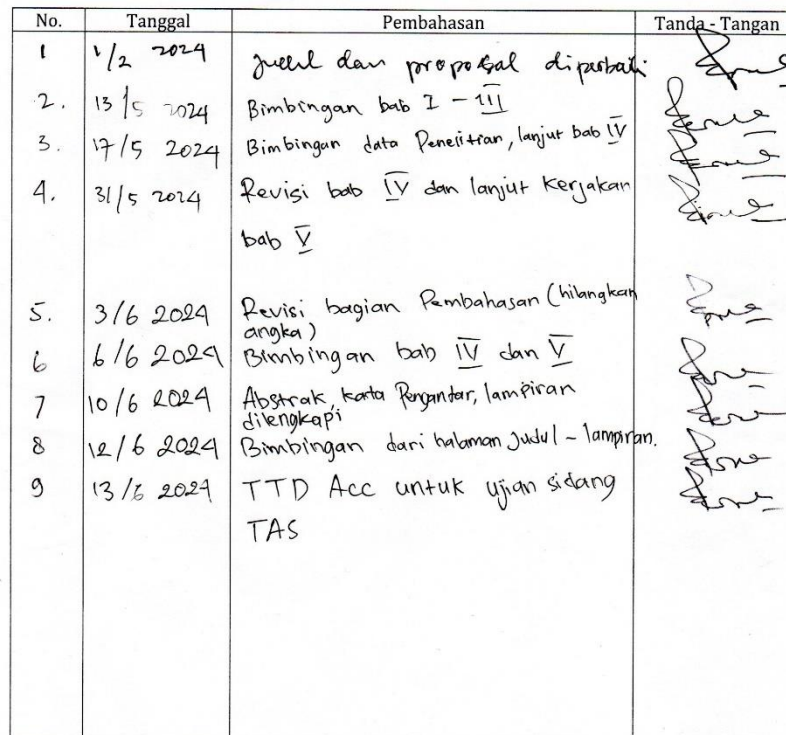 No. Tanggal Pembahasan Tanda - Tangan
1 1/2 2024 Judul dan proposal diperbaiki
2. 13/5 2024 Bimbingan bab I - III
3. 17/5 2024 Bimbingan data Penelitian, lanjut bab IV
4. 31/5 2024 Revisi bab IV dan lanjut kerjakan
bab V
5. 3/6 2024 Revisi bagian Pembahasan (hilangkan
angka)
6 6/6 2024 Bimbingan bab IV dan V
7 10/6 2024 Abstrak, kata Pengantar, lampiran
dilengkapi
8 12/6 2024 Bimbingan dari halaman Judul - lampiran.
9 13/6 2024 TTD Acc untuk ujian sidang
TAS